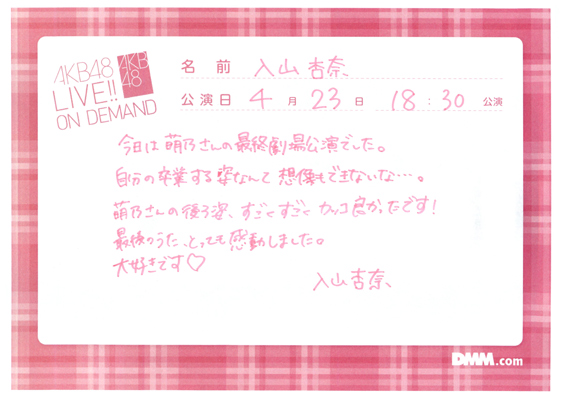 AKB48
LIVE!!
ON DEMAND
AKB
48
名前 入山杏奈
公演日 4月23日 18:30公演
今日は萌乃さんの最終劇場公演でした。
自分の卒業する姿なんて想像もできないな…。
萌乃さんの後ろ姿、すごくすごくカッコ良かったです!
最後のうた、とっても感動しました。
大好きです♡
入山杏奈、
DMM.com